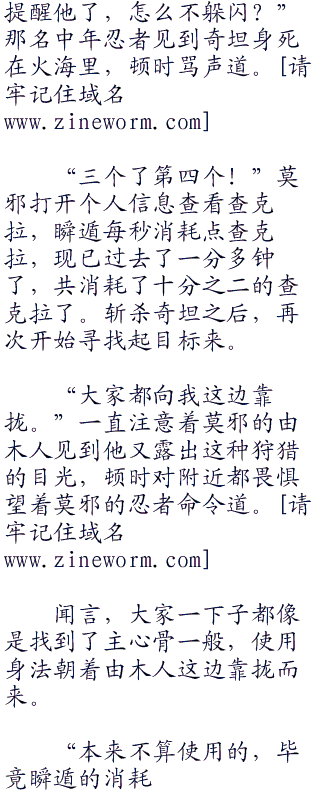 提醒他了，怎么不躲闪？”
那名中年忍者见到奇坦身死
在火海里，顿时骂声道。[请
牢记住域名
www.zineworm.com]
“三个了第四个！”莫
邪打开个人信息查看查克
拉，瞬遁每秒消耗点查克
拉，现已过去了一分多钟
了，共消耗了十分之二的查
克拉了。斩杀奇坦之后，再
次开始寻找起目标来。
“大家都向我这边靠
拢。”一直注意着莫邪的由
木人见到他又露出这种狩猎
的目光，顿时对附近都畏惧
望着莫邪的忍者命令道。[请
牢记住域名
www.zineworm.com]
闻言，大家一下子都像
是找到了主心骨一般，使用
身法朝着由木人这边靠拢而
来。
“本来不算使用的，毕
竟瞬遁的消耗